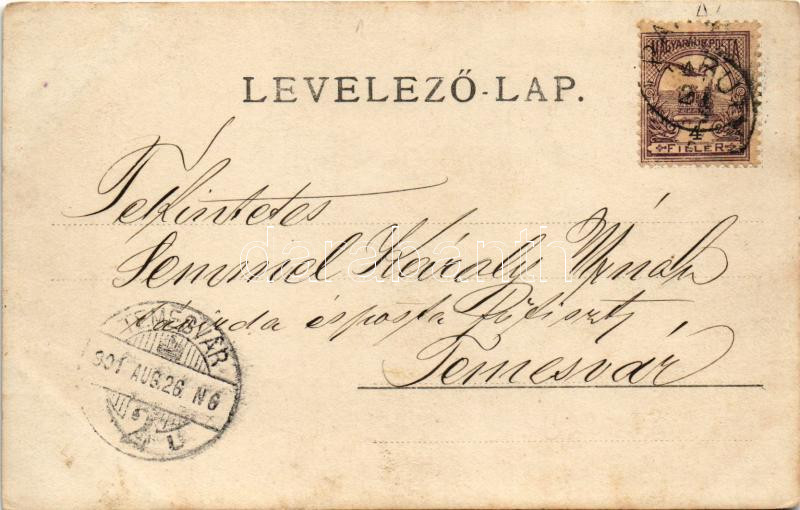 LEVELEZŐ-LAP.
MAGYAR KIR. POSTA
4
FILLÉR
Tekintetes
Semmel Károly Úrnak
távirda és posta főtiszt,
Temesvár
TEMESVÁR
901 AUG. 26 N6
darabanth